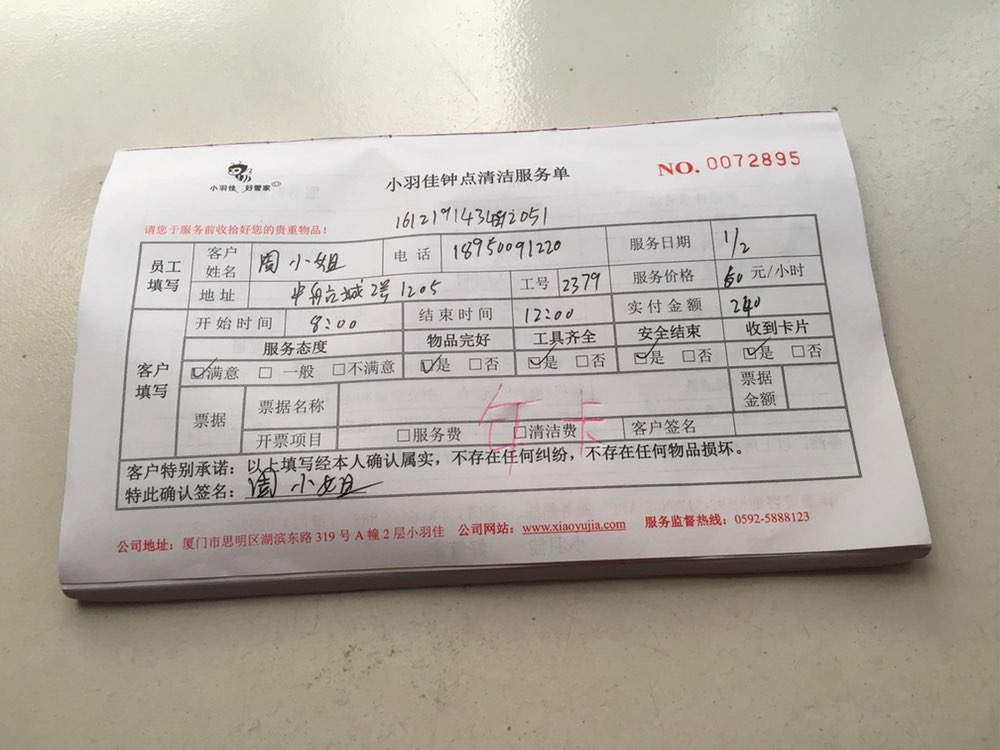 小羽佳 好管家
小羽佳钟点清洁服务单
NO. 0072895
请您于服务前收拾好您的贵重物品！
员工填写 客户姓名 周小姐 电话 18950091220 服务日期 1/2
地址 2号1205 工号 2379 服务价格 60 元/小时
客户填写 开始时间 8:00 结束时间 12:00 实付金额 240
服务态度 物品完好 工具齐全 安全结束 收到卡片
☑满意 □ 一般 □不满意 ☑是 □否 ☑是 □否 ☑是 □否 ☑是 □否
票据 票据名称 票据金额
开票项目 □服务费 □清洁费 客户签名
年卡
客户特别承诺：以上填写经本人确认属实，不存在任何纠纷，不存在任何物品损坏。
特此确认签名：周小姐
公司地址：厦门市思明区湖滨东路 319 号 A 幢 2 层小羽佳 公司网站：www.xiaoyujia.com 服务监督热线：0592-5888123